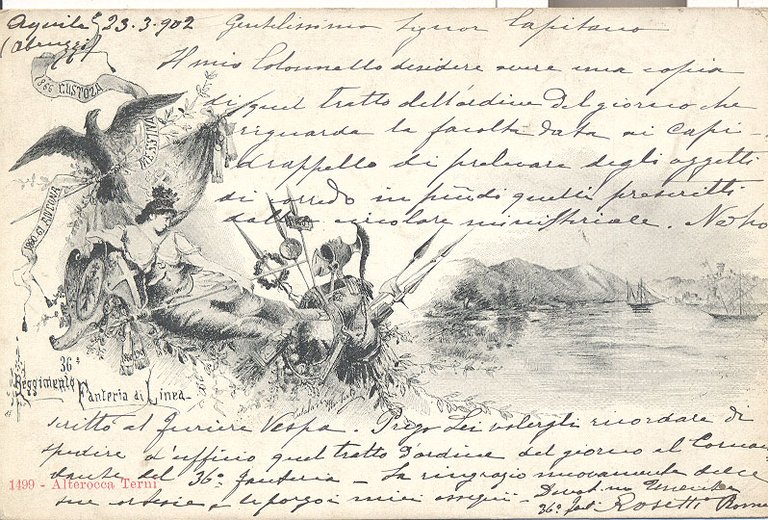 Aquila 23.3.902 Gentilissimo Signor Capitano
(Abruzzi)
Il mio Colonnello desidera avere una copia
di quel tratto dell'ordine del giorno che
riguarda la facoltà data ai Capi-
drappello di prelevare degli oggetti
di corredo in più di quelli prescritti
dalla circolare ministeriale. Ne ho
1866 CUSTOZA
MESSINA
36°
Reggimento Fanteria di Linea
scritto al Furiere Vespa. Prego Lei volergli ricordare di
spedire a l'ufficio quel tratto d'ordine del giorno al Coman
dante del 36° fanteria - La ringrazio nuovamente della
sua cortesia e le porgo i miei ossequi -
36° fant Rosetti
1499 - Alterocca Terni